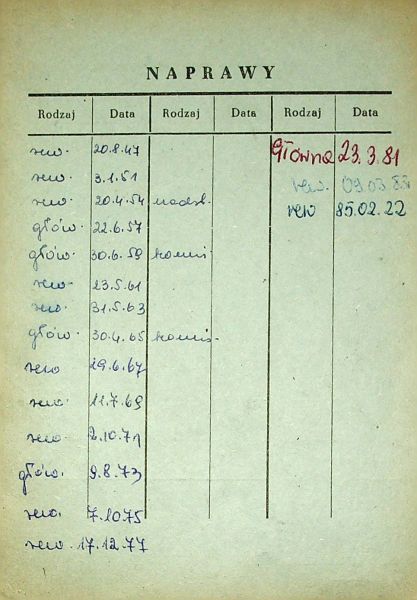 NAPRAWY
Rodzaj Data Rodzaj Data Rodzaj Data
rew. 20.8.47 Główna 23.3.81
rew. 3.1.51 rew. 09.03.83
rew. 20.4.54 nadzw. rew 85.02.22
głów. 22.6.57
głów. 30.6.59 komis
rew. 23.5.61
rew. 31.5.63
głów. 30.4.65 komis.
rew 19.6.67
rew. 11.7.69
rew. 2.10.71
głów. 9.8.73
rew. 7.10.75
rew. 17.12.77